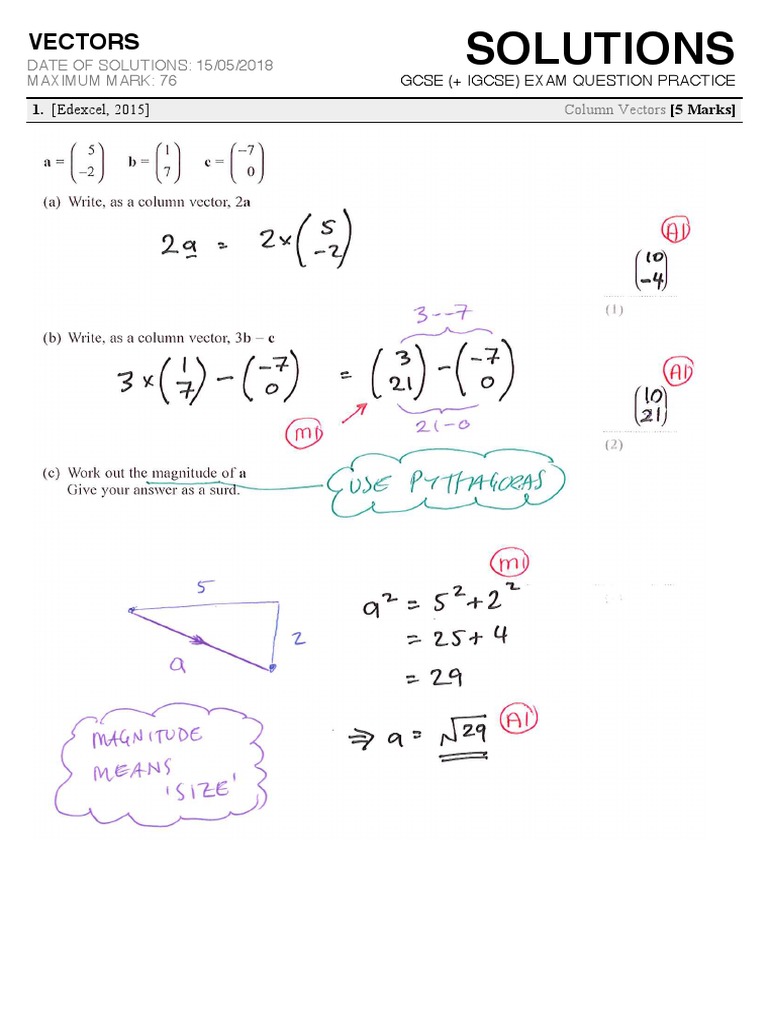 VECTORS
SOLUTIONS
DATE OF SOLUTIONS: 15/05/2018
MAXIMUM MARK: 76
GCSE (+ IGCSE) EXAM QUESTION PRACTICE
1. [Edexcel, 2015]
Column Vectors [5 Marks]
a = (5 -2) b = (1 7) c = (-7 0)
(a) Write, as a column vector, 2a
2a = 2×(5 -2)
A1
(10 -4)
(1)
3--7
(b) Write, as a column vector, 3b – c
3×(1 7) - (-7 0) = (3 21) - (-7 0)
A1
(10 21)
M1
21-0
(2)
(c) Work out the magnitude of a
Give your answer as a surd.
USE PYTHAGORAS
M1
5
2
a
a² = 5² + 2²
= 25 + 4
= 29
⇒ a = √29
A1
MAGNITUDE
MEANS
'SIZE'